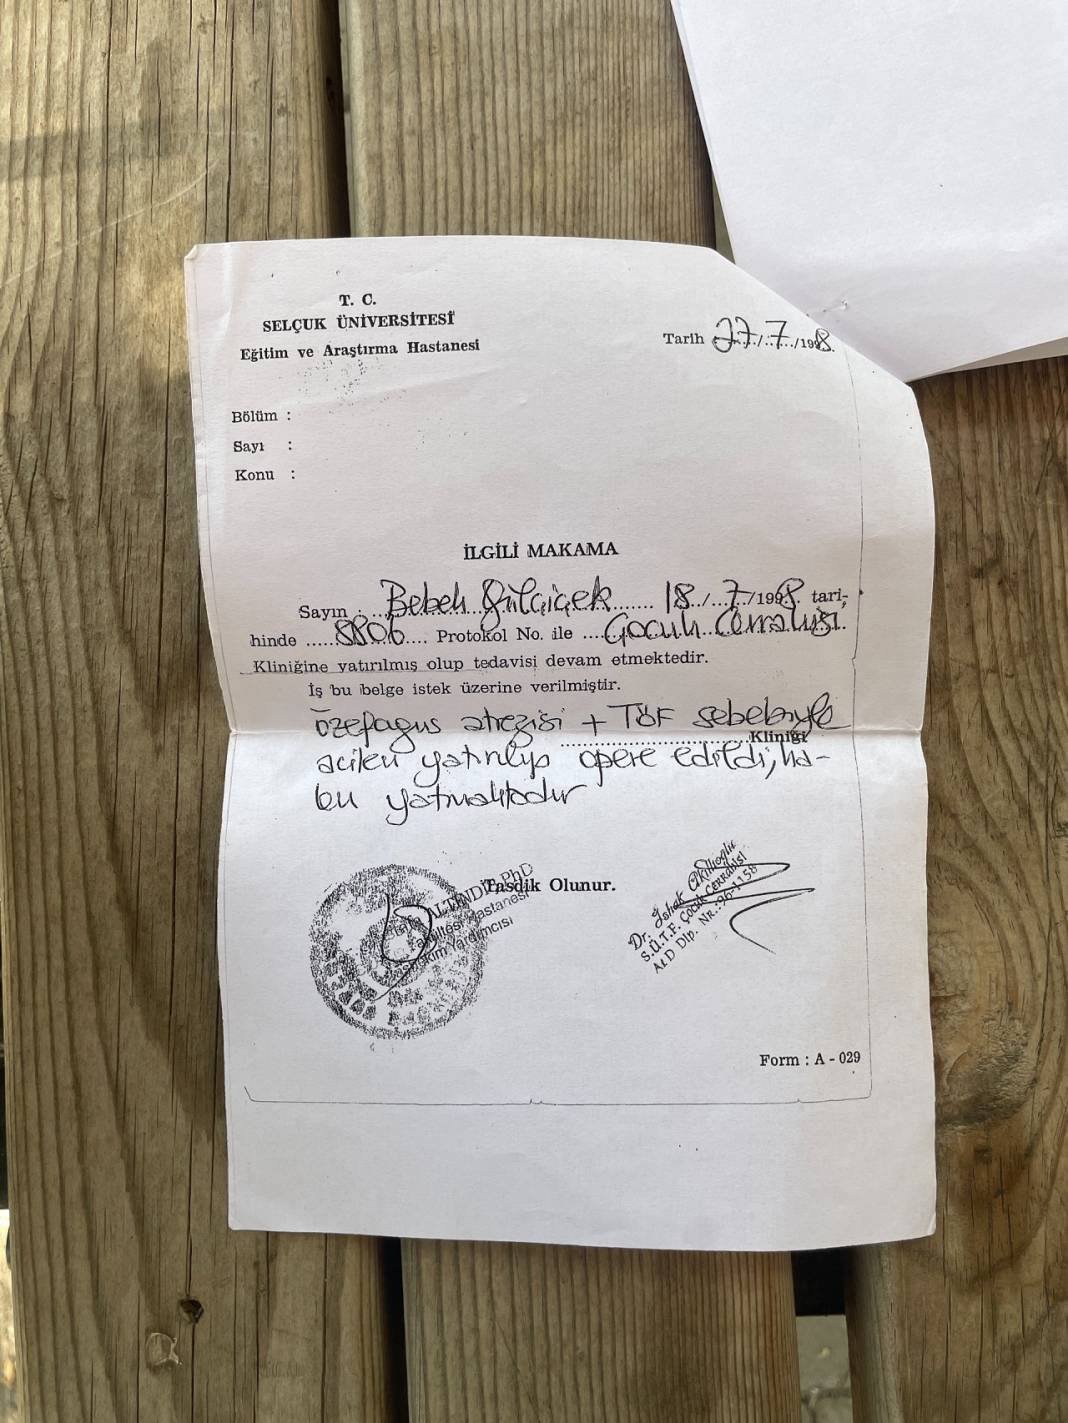 T. C.
SELÇUK ÜNİVERSİTESİ
Eğitim ve Araştırma Hastanesi
Tarih 27/7/1998.
Bölüm :
Sayı :
Konu :
İLGİLİ MAKAMA
Sayın : Bebek Gülçiçek 18/7/1998 tari-
hinde 8806 Protokol No. ile Çocuk Cerrahisi
Kliniğine yatırılmış olup tedavisi devam etmektedir.
İş bu belge istek üzerine verilmiştir.
özefagus atrezisi + TÖF sebebiyle
Kliniği
acilen yatırılıp opere edildi, ha-
len yatmaktadır
Tasdik Olunur.
ALTINDİŞ PhD
Fakültesi Hastanesi
Başhekim Yardımcısı
Dr. İshak
S.Ü.T.F. ÇOCUK CERRAHİSİ
Dip. Nr.: 96-1158
Form : A - 029